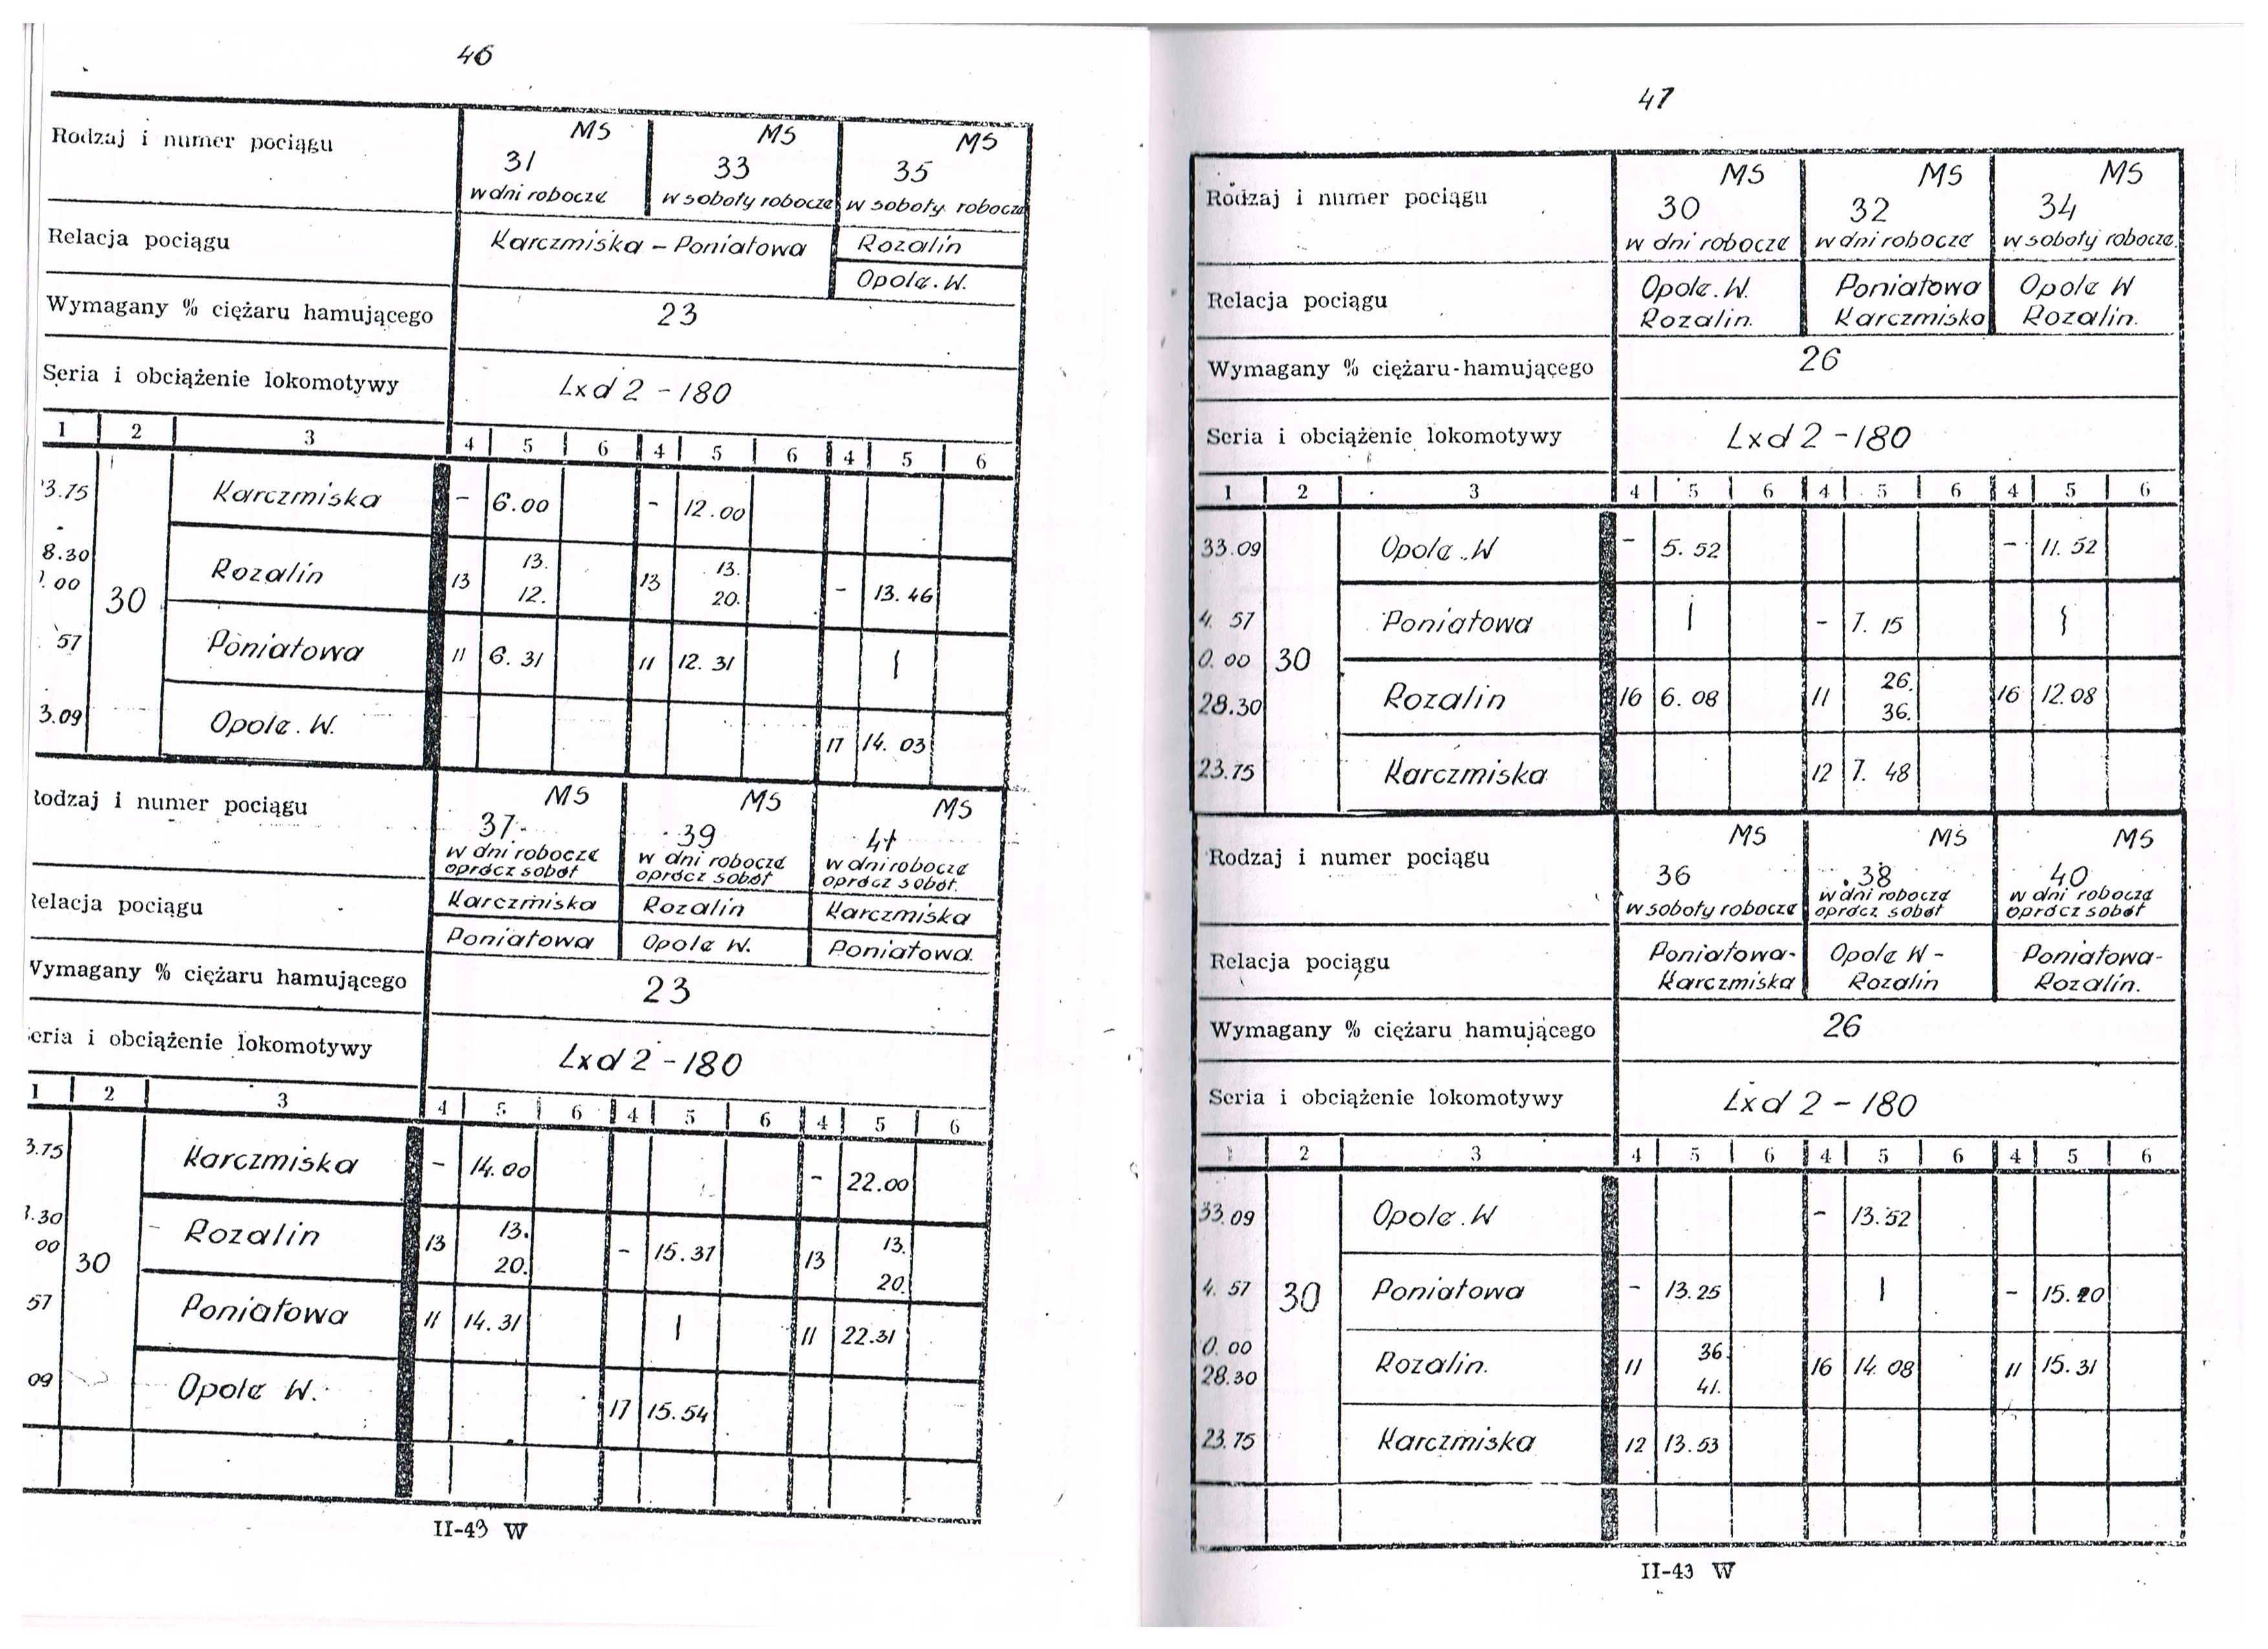 46
Rodzaj i numer pociągu
MS MS MS
31 33 35
w dni robocze w soboty robocze w soboty robocze
Relacja pociągu
Karczmiska - Poniatowa
Rozalin
Opole. W.
Wymagany % ciężaru hamującego 23
Seria i obciążenie lokomotywy Lxd 2 - 180
1 2 3 4 5 6 4 5 6 4 5 6
3.75 Karczmiska - 6.00 - 12.00
8.30 13. 13.
.00 30 Rozalin 13 12. 13 20. - 13.46
57 Poniatowa 11 6.31 11 12.31
3.09 Opole. W. 17 14.03
Rodzaj i numer pociągu
MS MS MS
37 39 41
w dni robocze w dni robocze w dni robocze
oprócz sobót oprócz sobót oprócz sobót.
Relacja pociągu
Karczmiska Rozalin Karczmiska
Poniatowa Opole W. Poniatowa.
Wymagany % ciężaru hamującego 23
eria i obciążenie lokomotywy Lxd 2 - 180
1 2 3 4 5 6 4 5 6 4 5 6
3.75 Karczmiska - 14.00 - 22.00
.30 13. 13.
00 30 Rozalin 13 20. - 15.37 13 20.
57 Poniatowa 11 14.31 | 11 22.31
09 Opole W. 17 15.54
II-43 W
47
Rodzaj i numer pociągu
MS MS MS
30 32 34
w dni robocze w dni robocze w soboty robocze.
Relacja pociągu
Opole. W. Poniatowa Opole W
Rozalin. Karczmiska Rozalin.
Wymagany % ciężaru hamującego 26
Seria i obciążenie lokomotywy Lxd 2 - 180
1 2 3 4 5 6 4 5 6 4 5 6
33.09 Opole. W - 5.52 - 11.52
4.57 Poniatowa | - 7.15
0.00 30 26.
28.30 Rozalin 16 6.08 11 36. 16 12.08
23.75 Karczmiska 12 7.48
Rodzaj i numer pociągu
MS MS MS
36 38 40
w soboty robocze w dni robocze oprócz sobót w dni robocze oprócz sobót
Relacja pociągu
Poniatowa- Opole W - Poniatowa-
Karczmiska Rozalin Rozalin.
Wymagany % ciężaru hamującego 26
Seria i obciążenie lokomotywy Lxd 2 - 180
1 2 3 4 5 6 4 5 6 4 5 6
33.09 Opole. W - 13.52
4.57 30 Poniatowa - 13.25 | - 15.20
0.00 36.
28.30 Rozalin. 11 41. 16 14.08 11 15.31
23.75 Karczmiska 12 13.53
II-43 W